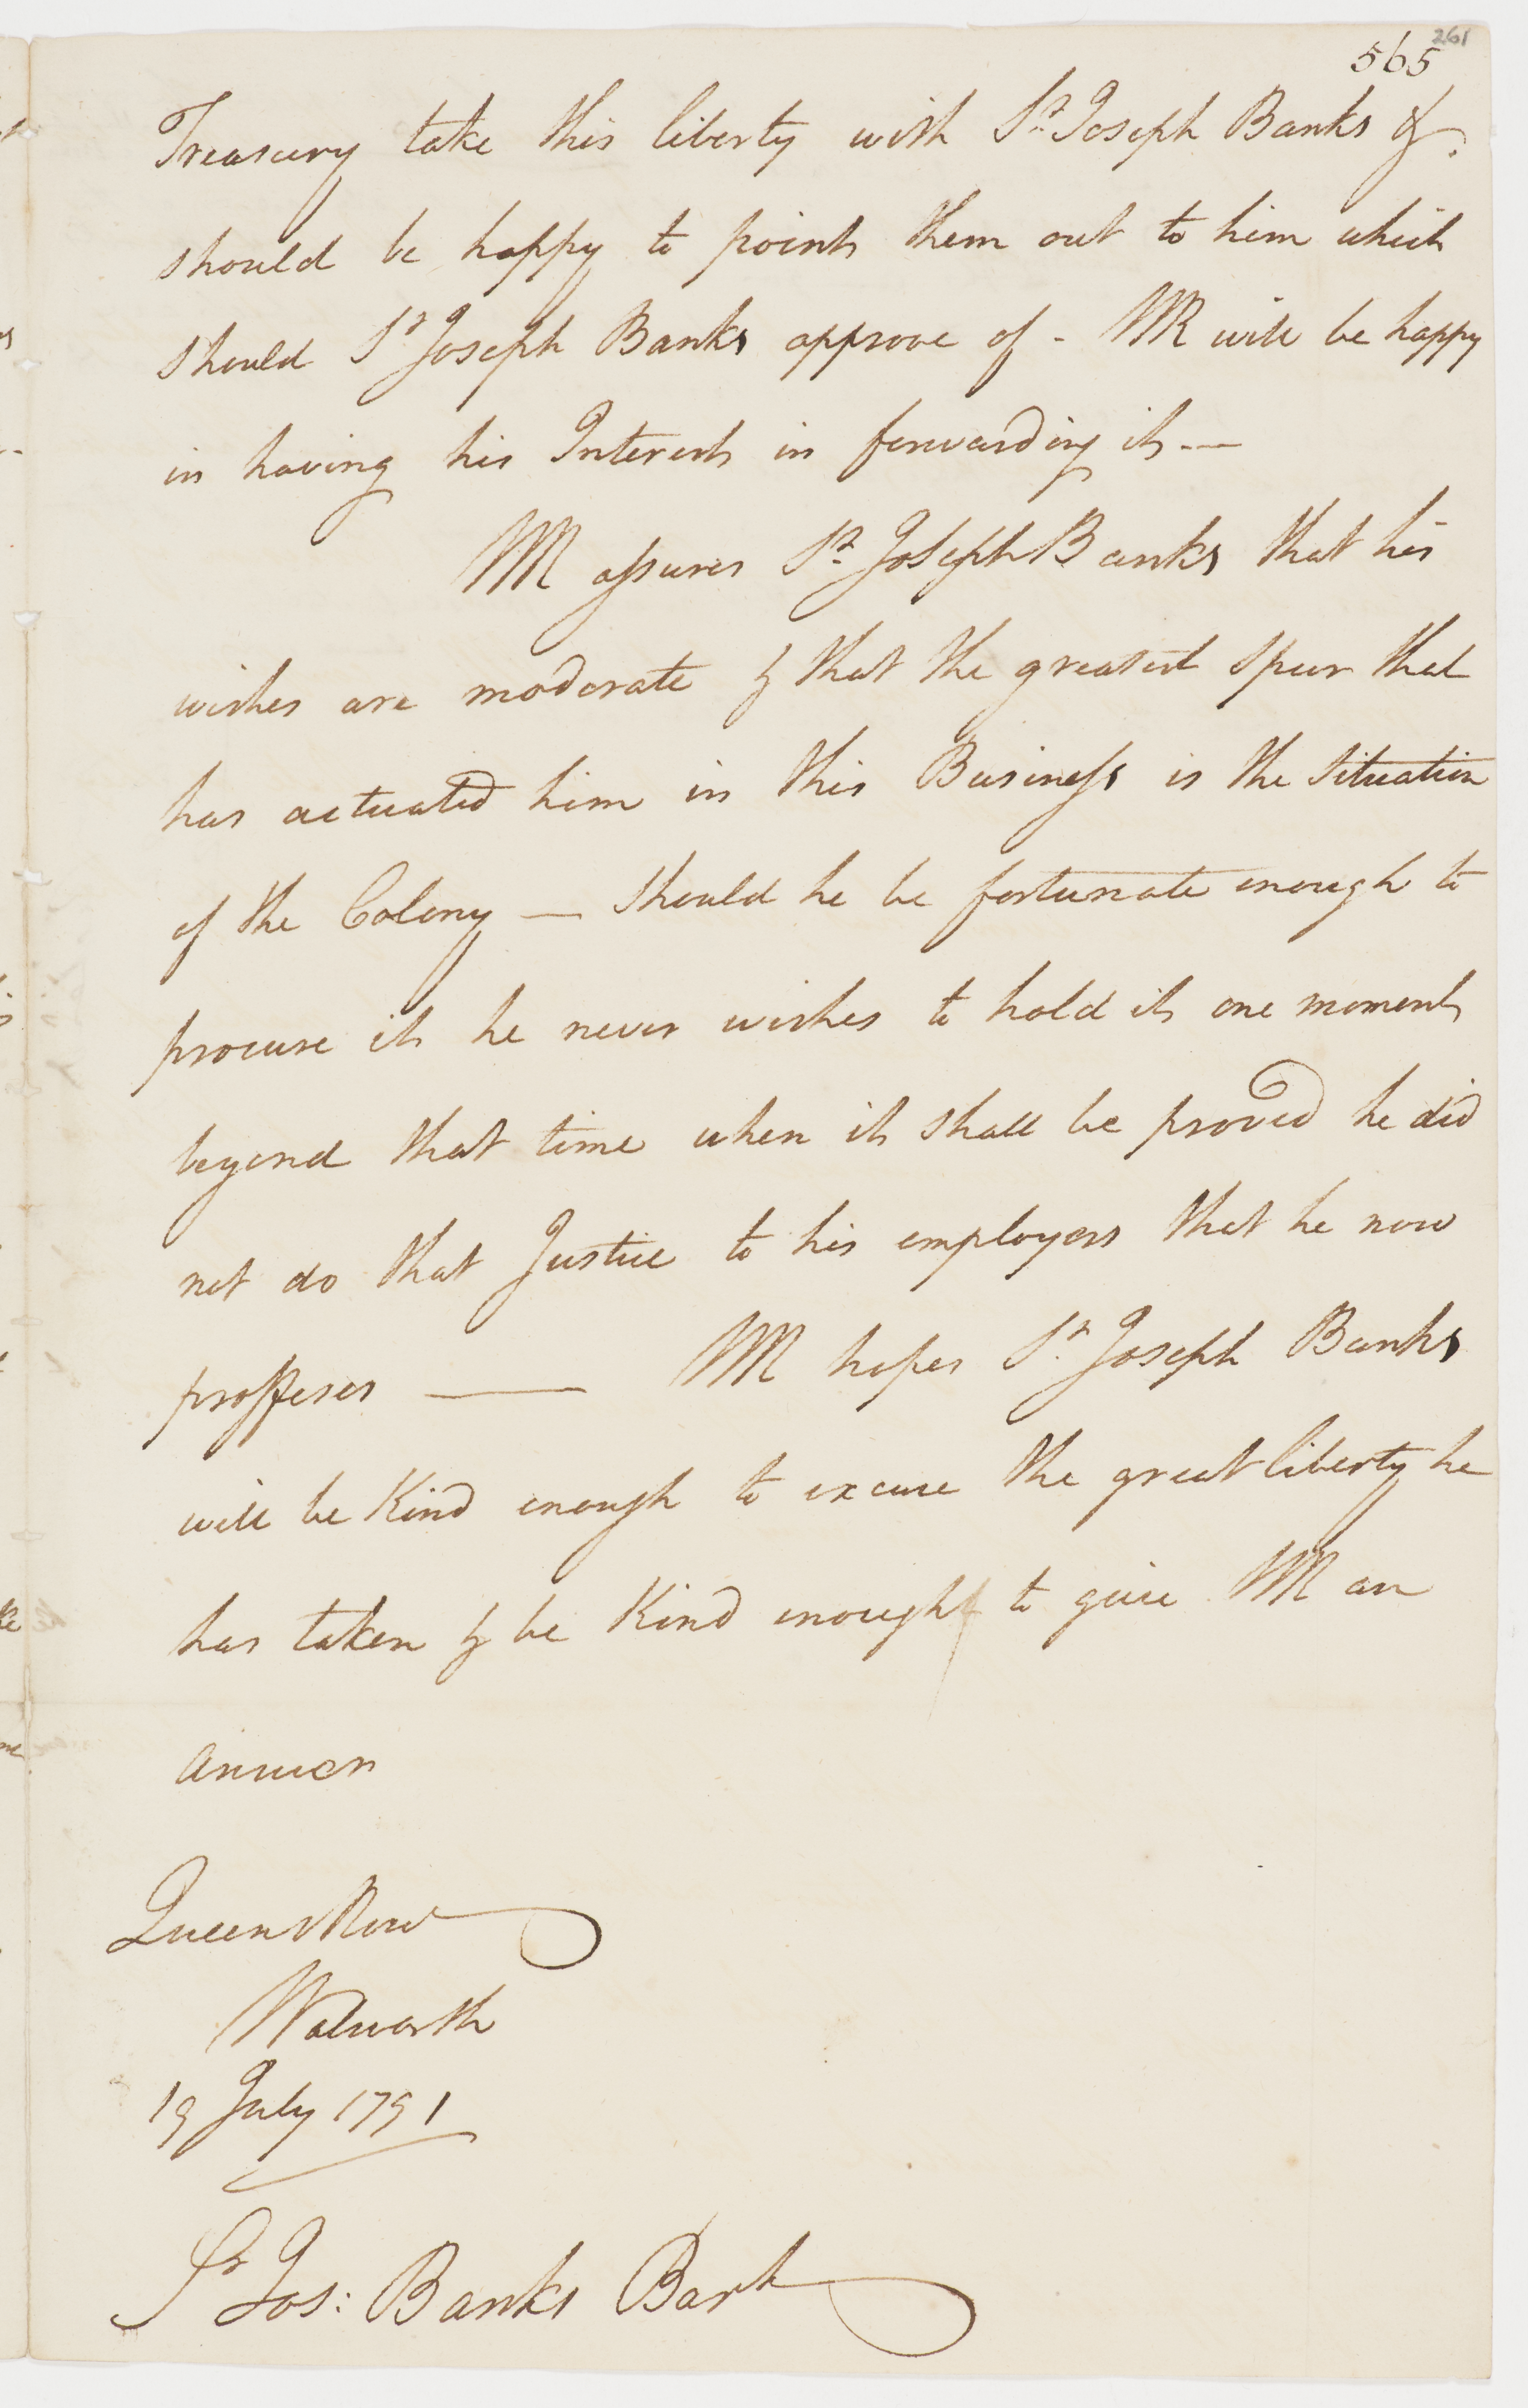 261
565
Treasury take this liberty with Sr. Joseph Banks &.
should be happy to point them out to him which
should Sr Joseph Banks approve of - WR will be happy
in having his Interest in forwarding it —
WR assures Sr. Joseph Banks that his
wishes are moderate & that the greatest spur that
has actuated him in this Business is the Situation
of the Colony — should he be fortunate enough to
procure it he never wishes to hold it one moment
beyond that time when it shall be proved he did
not do that Justice to his employers that he now
proffeses — WR hopes Sr. Joseph Banks
will be Kind enough to excuse the great liberty he
has taken & be Kind enough to give WR an
answer
Queens Row
Walworth
19 July 1791
Sr Jos: Banks Bart